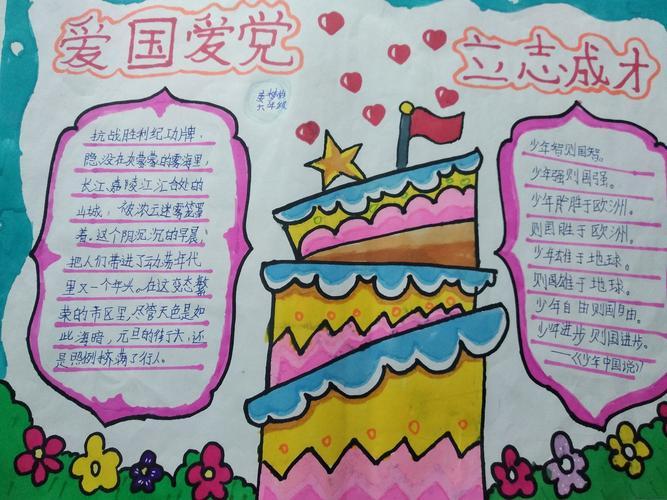 爱国爱党
立志成才
六年级
抗战胜利纪功牌，
隐没在灰蒙蒙的雾海里，
长江、嘉陵江汇合处的
山城，被浓云迷雾笼罩
着。这个阴沉沉的早晨，
把人们带进了动荡年代
里又一个年头。在这变态繁
荣的市区里，尽管天色是如
此海暗，元旦的街头，还
是照例挤满了行人。
少年智则国智。
少年强则国强。
少年胜于欧洲。
则国胜于欧洲。
少年雄于地球。
则国雄于地球。
少年自由则国自由。
少年进步则国进步。
——《少年中国说》